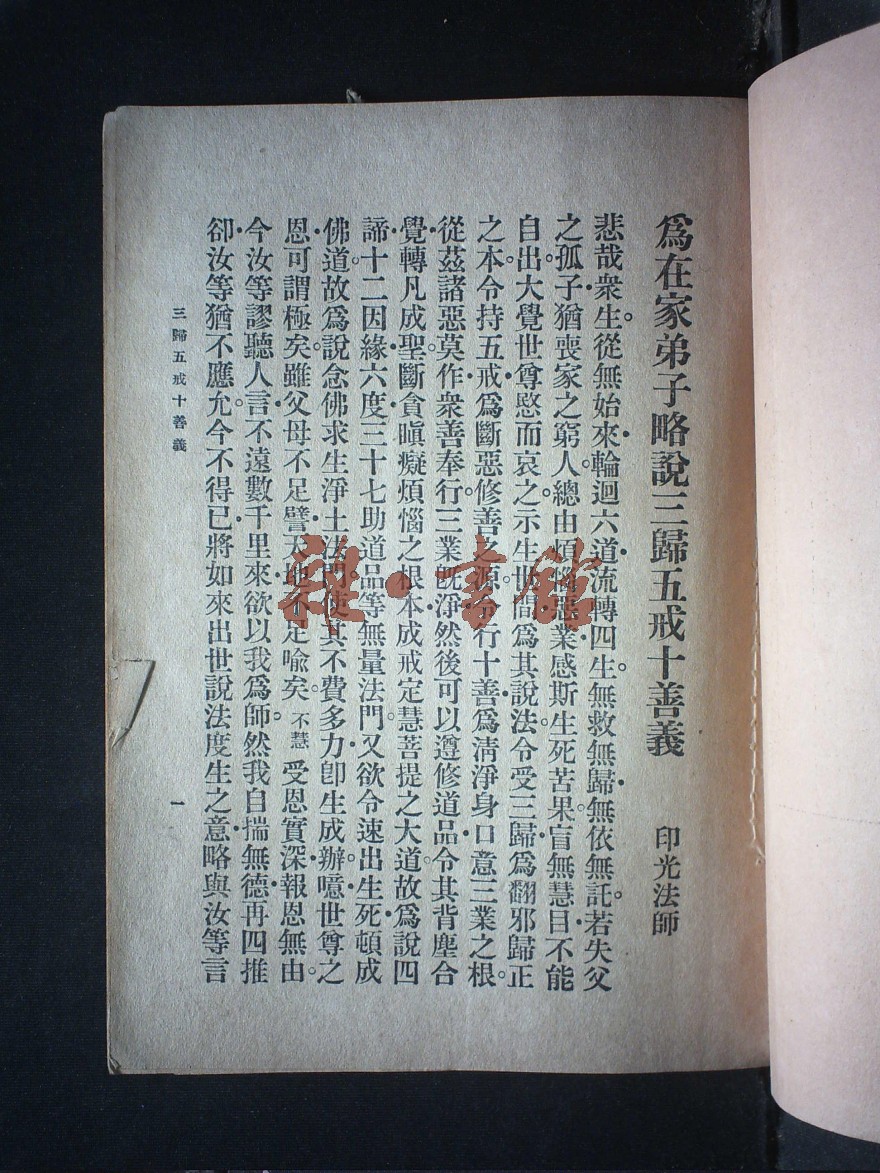 爲在家弟子略說三歸五戒十善義
印光法師
悲哉衆生。從無始來。輪迴六道。流轉四生。無救無歸。無依無託。若失父
之孤子。猶喪家之窮人。總由煩惱惡業。感斯生死苦果。盲無慧目。不能
自出。大覺世尊。愍而哀之。示生世間。爲其說法。令受三歸。爲翻邪歸正
之本。令持五戒。爲斷惡修善之源。令行十善。爲清淨身口意三業之根。
從茲諸惡莫作。衆善奉行。三業旣淨。然後可以遵修道品。令其背塵合
覺。轉凡成聖。斷貪瞋癡煩惱之根本。成戒定慧菩提之大道。故爲說四
諦十二因緣六度三十七助道品等無量法門。又欲令速出生死。頓成
佛道。故爲說念佛求生淨土法門。使其不費多力。卽生成辦。噫。世尊之
恩。可謂極矣。雖父母不足譬。天地不足喩矣。不慧受恩實深。報恩無由。
今汝等謬聽人言。不遠數千里來。欲以我爲師。然我自揣無德。再四推
卻。汝等猶不應允。今不得已。將如來出世說法度生之意。略與汝等言
三歸五戒十善義
一
雜·書館